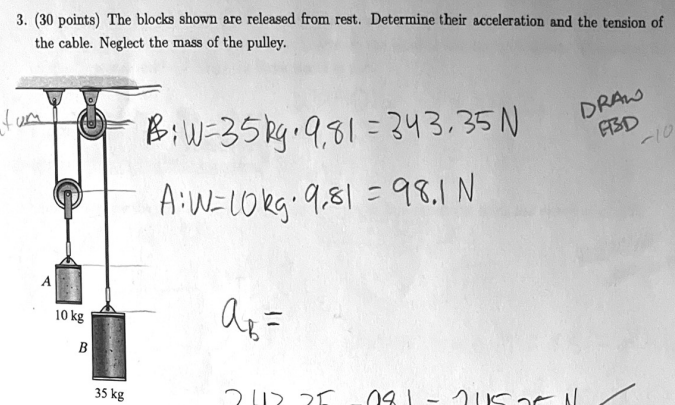 3. (30 points) The blocks shown are released from rest. Determine their acceleration and the tension of
the cable. Neglect the mass of the pulley.
B: W=35kg·9,81 = 343.35 N
DRAW
FBD
-10
A: W=10kg·9.81 = 98.1 N
A
10 kg
a_B =
B
35 kg